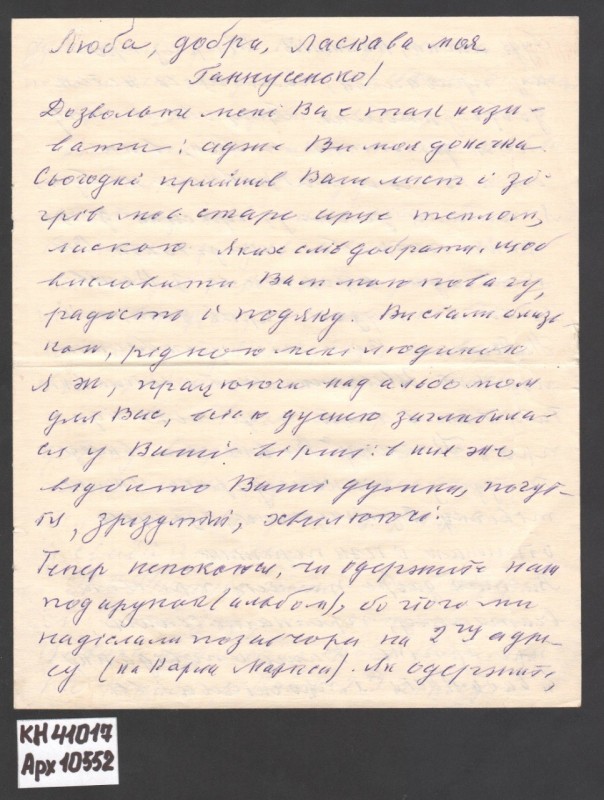 Люба, добра, ласкава моя
Ганнусенько!
Дозвольте мені Вас так нази-
вати: адже Ви моя донечка.
Сьогодні прийшов Ваш лист і зі-
грів моє старе серце теплом,
ласкою. Яких слів добрати, щоб
висловити Вам мою повагу,
радість і подяку. Ви стали близь-
кою, рідною мені людиною.
Я ж, працюючи над альбомом
для Вас, всією душею заглибила-
ся у Ваші вірші: в них же
відбито Ваші думки, почут-
тя, зрозумілі, хвилюючі.
Тепер непокоюсь, чи одержите наш
подарунок (альбом), бо його ми
надіслали позавчора на 2гу адре-
су (на Карла Маркса). Як одержите,
КН 41017
Арх 10552